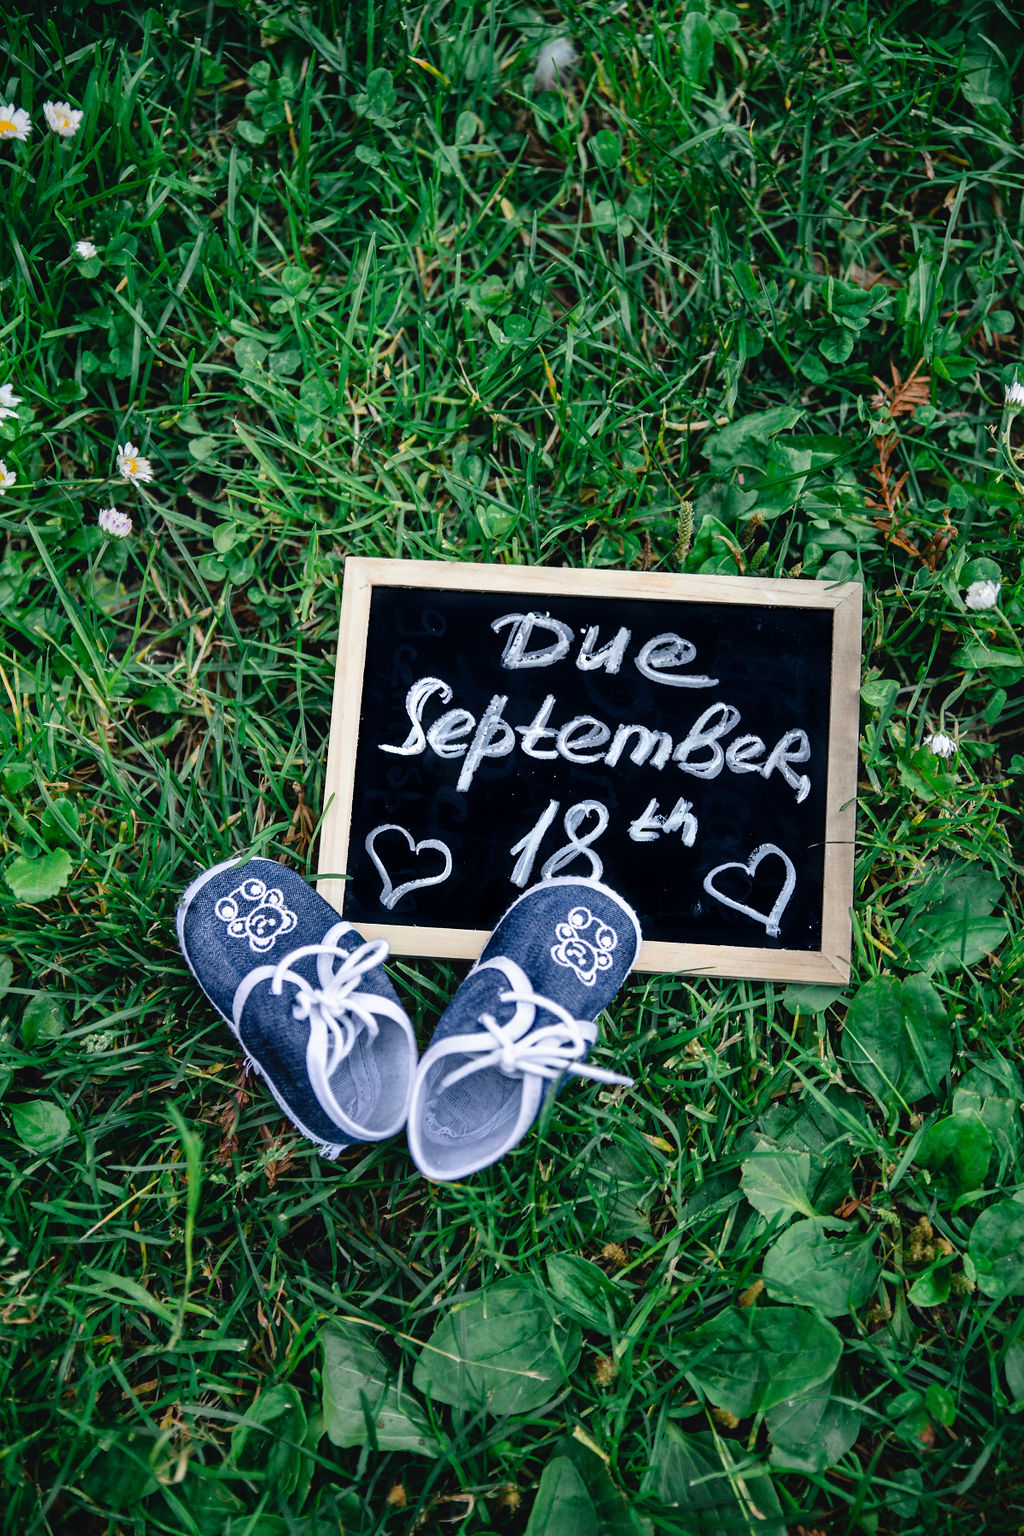 Due
September,
18th